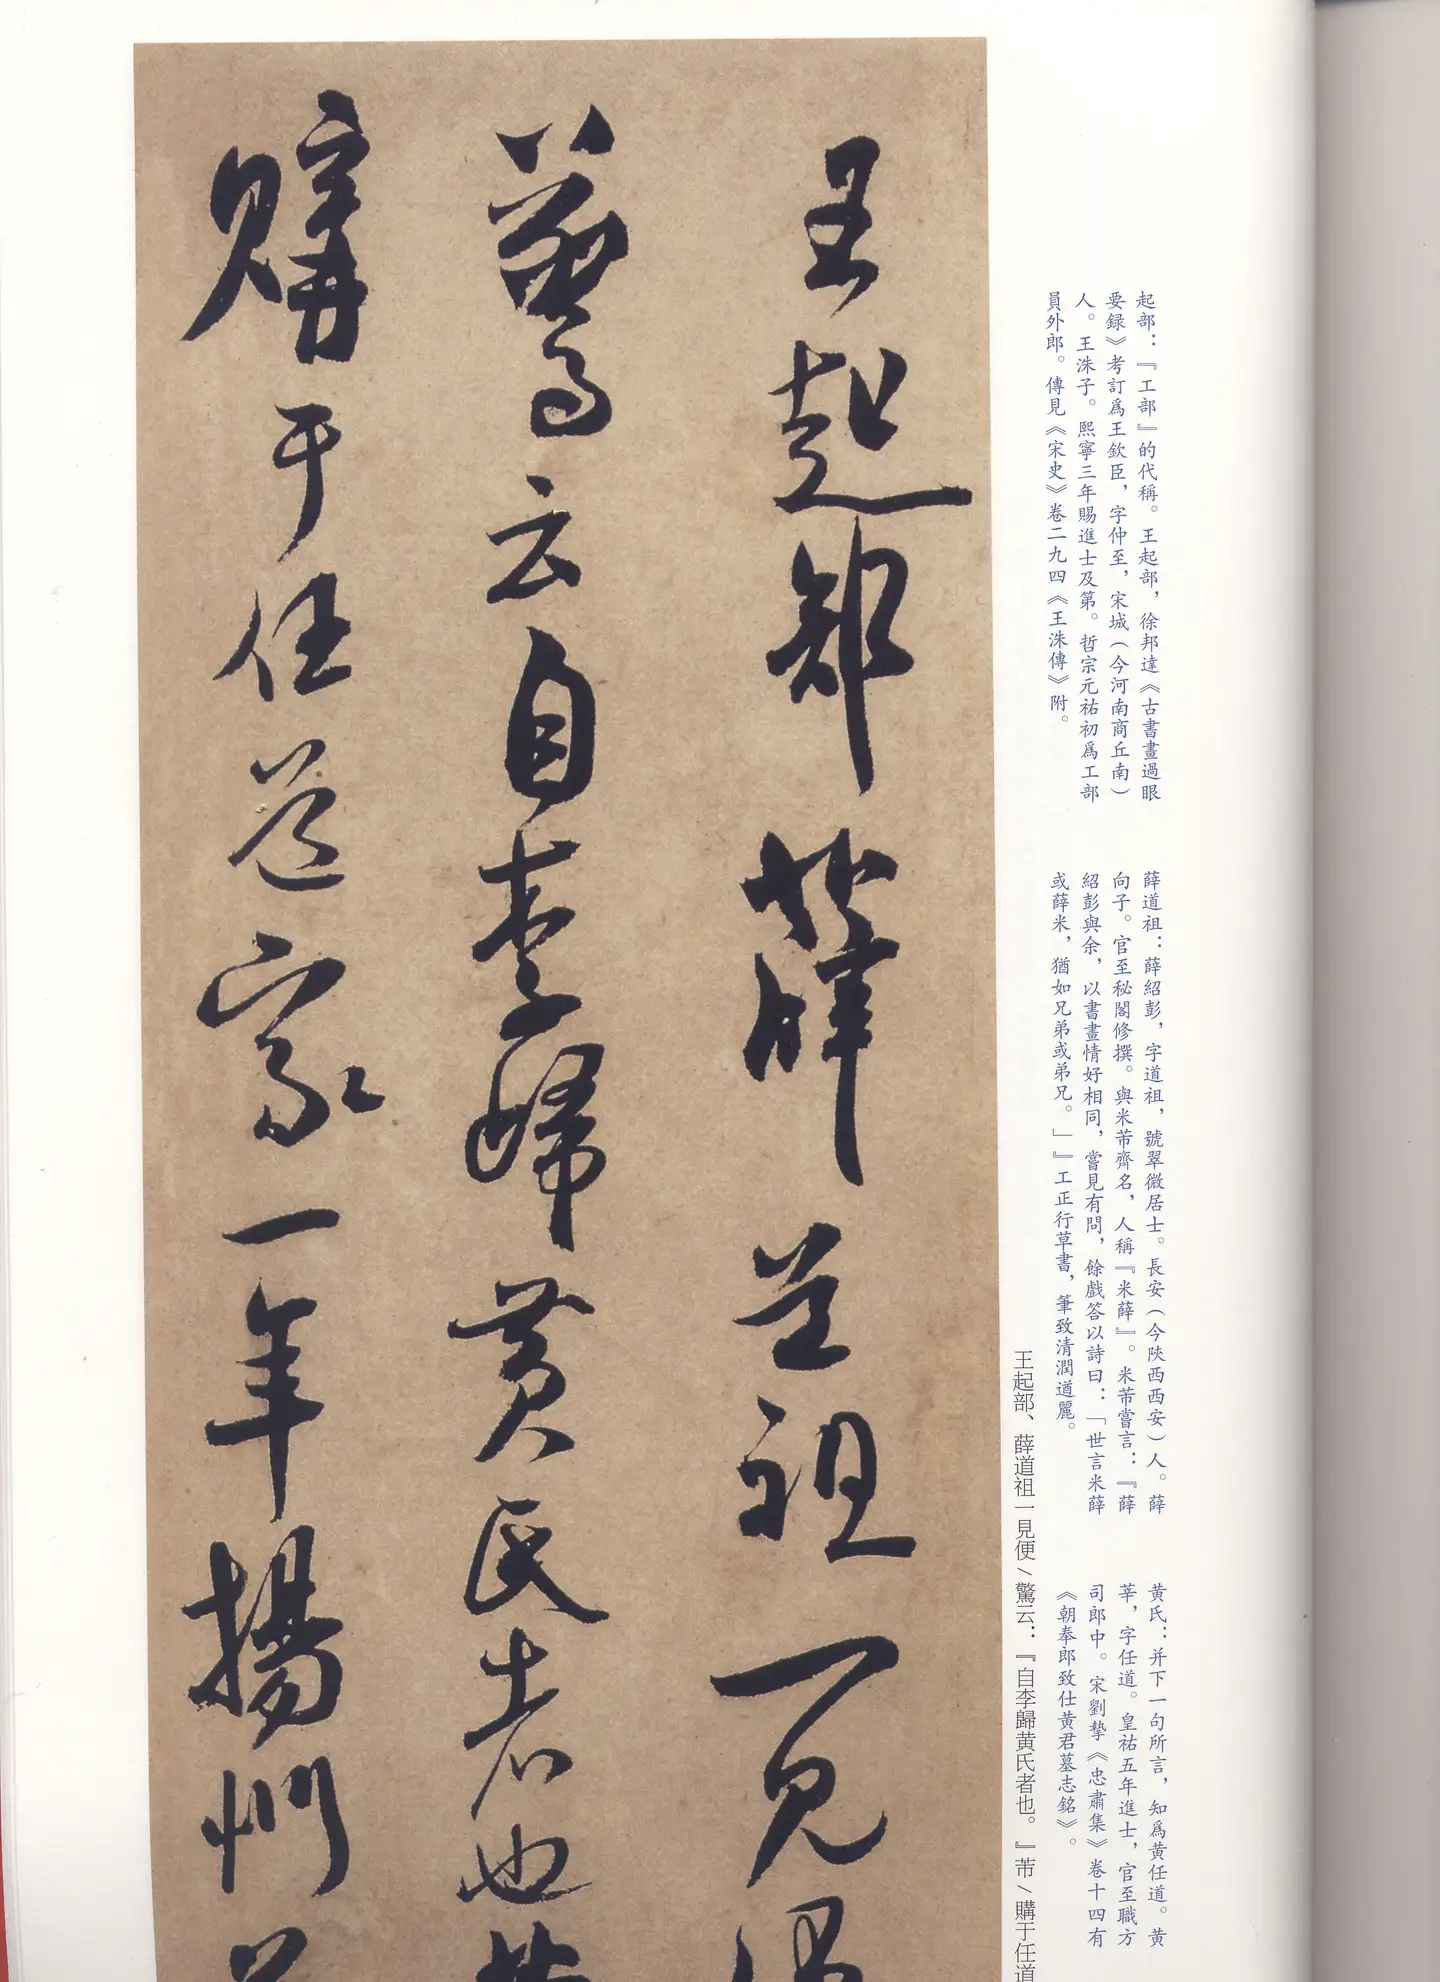 起部：『工部』的代稱。王起部，徐邦達《古書畫過眼
要録》考訂爲王欽臣，字仲至，宋城（今河南商丘南）
人。王洙子。熙寧三年賜進士及第。哲宗元祐初爲工部
員外郎。傳見《宋史》卷二九四《王洙傳》附。
薛道祖：薛紹彭，字道祖，號翠微居士。長安（今陝西西安）人。薛
向子。官至秘閣修撰。與米芾齊名，人稱『米薛』。米芾嘗言：『薛
紹彭與余，以書畫情好相同，嘗見有問，餘戲答以詩曰：「世言米薛
或薛米，猶如兄弟或弟兄。」』工正行草書，筆致清潤遒麗。
黄氏：并下一句所言，知爲黄任道。黄
莘，字任道。皇祐五年進士，官至職方
司郎中。宋劉摯《忠肅集》卷十四有
《朝奉郎致仕黄君墓志銘》。
王起部、薛道祖一見便/驚云：『自李歸黄氏者也。』芾/購于任道
王起部薛道祖一見便
驚云自李歸黄氏者也芾
購于任道家一年揚州送